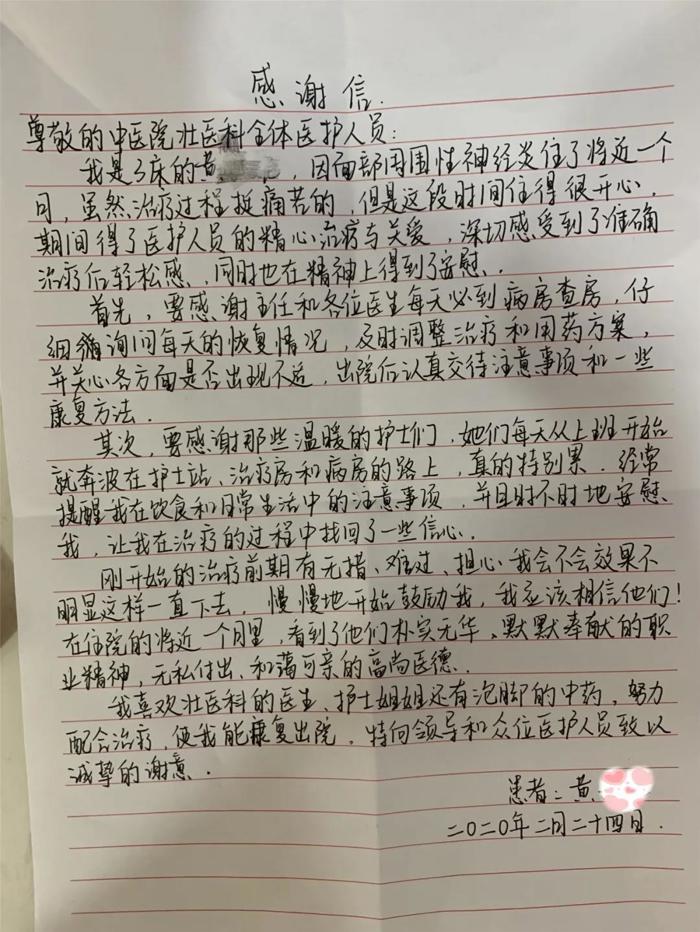 感谢信.
尊敬的中医院壮医科全体医护人员:
我是3床的黄 ，因面部周围性神经炎住了将近一个
月，虽然治疗过程挺痛苦的，但是这段时间住得很开心，
期间得了医护人员的精心治疗与关爱，深切感受到了准确
治疗后轻松感、同时也在精神上得到了安慰.
首先，要感谢主任和各位医生每天必到病房查房，仔
细 询问每天的恢复情况，及时调整治疗和用药方案，
并关心各方面是否出现不适，出院后认真交待注意事项和一些
康复方法.
其次，要感谢那些温暖的护士们，她们每天从上班开始
就奔波在护士站、治疗房和病房的路上，真的特别累.经常
提醒我在饮食和日常生活中的注意事项，并且时不时地安慰
我，让我在治疗的过程中找回了一些信心.
刚开始的治疗前期有无措、难过、担心我会不会效果不
明显这样一直下去，慢慢地开始鼓励我，我应该相信他们!
在住院的将近一个月里，看到了他们朴实无华、默默奉献的职
业精神，无私付出、和蔼可亲的高尚医德.
我喜欢壮医科的医生、护士姐姐还有泡脚的中药，努力
配合治疗，使我能康复出院，特向领导和众位医护人员致以
诚挚的谢意.
患者:黄
二0二0年二月二十四日.